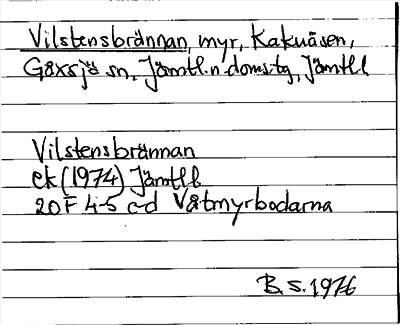 Vilstensbrännan, myr, Kakuåsen,
Gåxsjö sn, Jämtl.n.doms:tg, Jämtl.l
Vilstensbrännan
ek (1974) Jämtl.l
20F 4-5 c-d Våtmyrbodarna
B.S. 1976